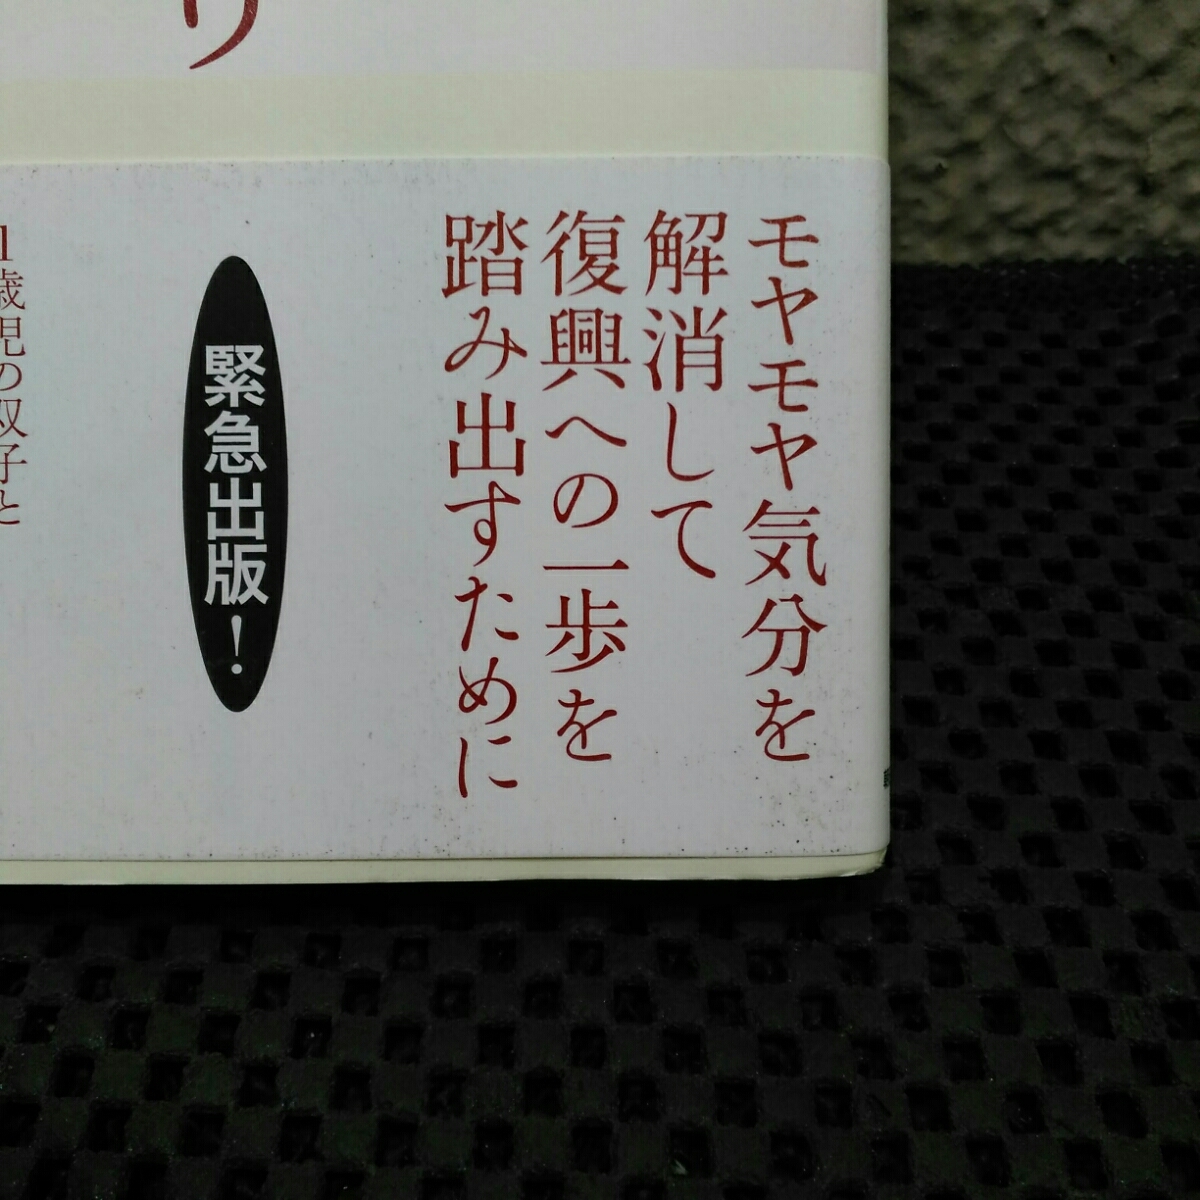 り
モヤモヤ気分を
解消して
復興への一歩を
踏み出すために
緊急出版！
1歳児の双子と